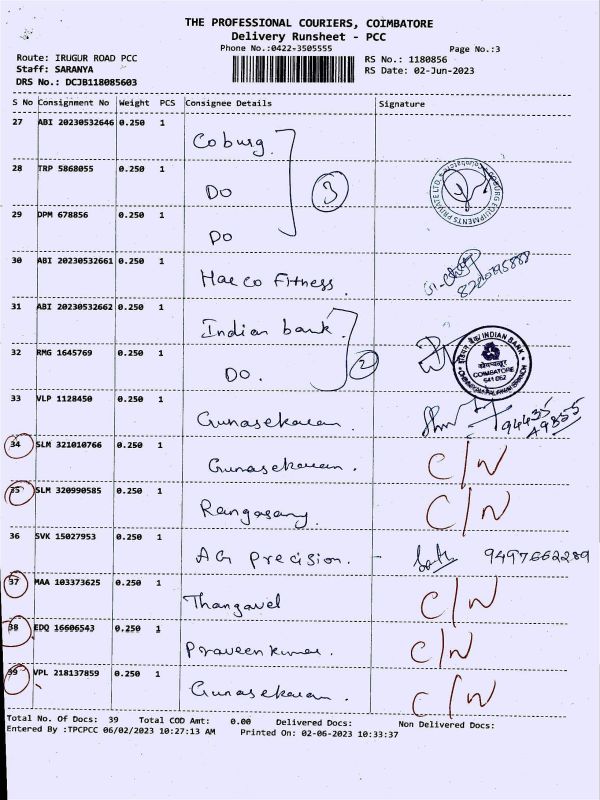 THE PROFESSIONAL COURIERS, COIMBATORE
Delivery Runsheet - PCC
Phone No.:0422-3505555 Page No.:3
Route: IRUGUR ROAD PCC RS No.: 1180856
Staff: SARANYA RS Date: 02-Jun-2023
DRS No.: DCJB118085603
S No Consignment No Weight PCS Consignee Details Signature
27 ABI 20230532646 0.250 1 Coburg
28 TRP 5868055 0.250 1 DO 3
29 DPM 678856 0.250 1 DO
30 ABI 20230532661 0.250 1 Haeco Fitness. 8220395888
31 ABI 20230532662 0.250 1 Indian bank.
32 RMG 1645769 0.250 1 DO. 2 INDIAN BANK COIMBATORE
33 VLP 1128450 0.250 1 Gunasekaran. 94435 49855
34 SLM 321010766 0.250 1 Gunasekaran. C/N
35 SLM 320990585 0.250 1 Rangasamy. C/N
36 SVK 15027953 0.250 1 AG Precision. - 9497662289
37 MAA 103373625 0.250 1 Thangavel C/N
38 EDQ 16606543 0.250 1 Praveen kumar. C/N
39 VPL 218137859 0.250 1 Gunasekaran. C/N
Total No. Of Docs: 39 Total COD Amt: 0.00 Delivered Docs: Non Delivered Docs:
Entered By :TPCPCC 06/02/2023 10:27:13 AM Printed On: 02-06-2023 10:33:37